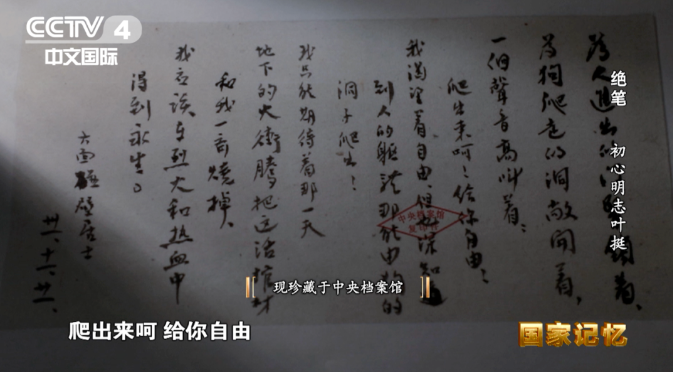 CCTV 4
中文国际
為人進出的門 鎖着,
為狗爬走的洞敞開着,
一個聲音高叫着:
爬出来呵!給你自由!
我渴望着自由,但也深知道
到人的軀體那能由狗的
洞子爬出!
我只能期待着那一天
地下的火衝騰把这活棺材
和我一斉燒掉,
我应该在烈火和热血中
得到永生。
六面碰壁居士
卅一、十一、廿一.
中央档案馆
绝笔 初心明志叶挺
现珍藏于中央档案馆
爬出来呵 给你自由
国家记忆